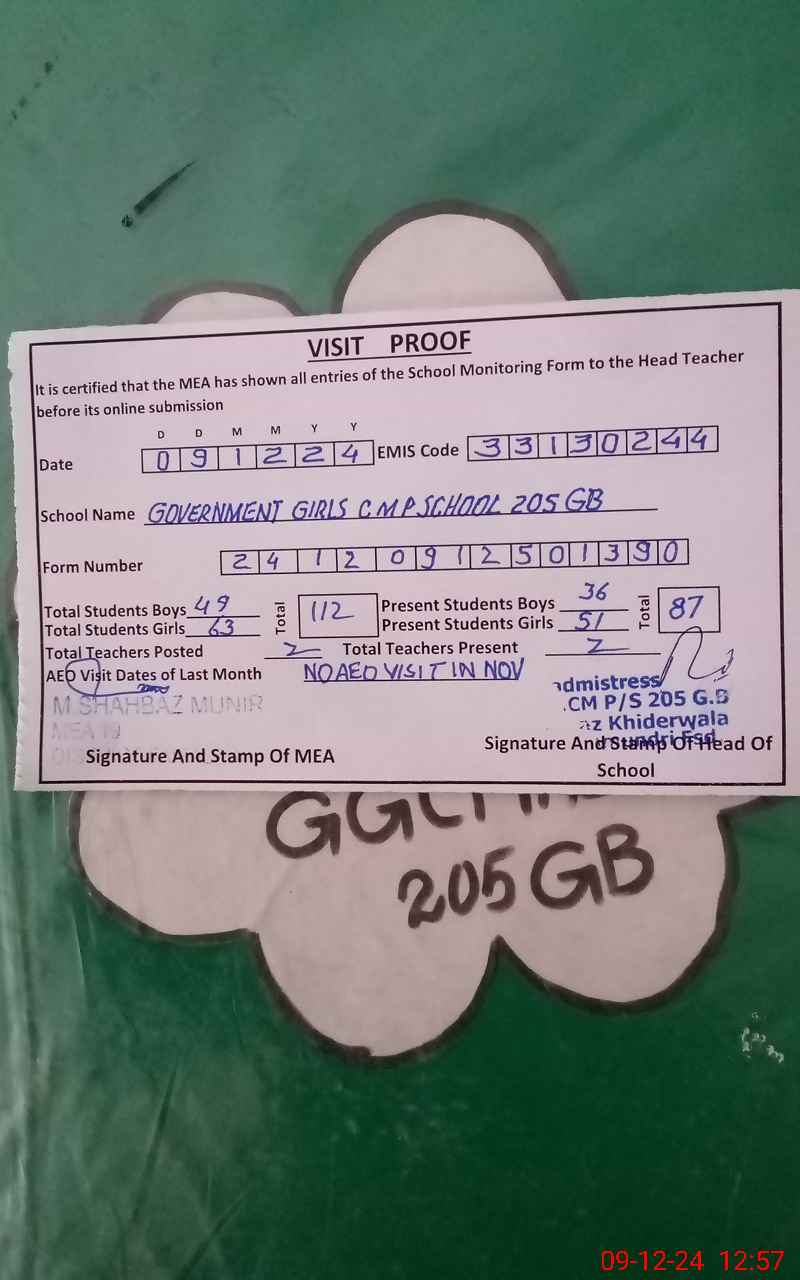 VISIT PROOF
It is certified that the MEA has shown all entries of the School Monitoring Form to the Head Teacher
before its online submission
D D M M Y Y
Date 091224 EMIS Code 33130244
School Name GOVERNMENT GIRLS C M P SCHOOL 205 GB
Form Number 24120912501390
Total Students Boys 49 Total 112 Present Students Boys 36 Total 87
Total Students Girls 63 Present Students Girls 51
Total Teachers Posted 2 Total Teachers Present 2
AEO Visit Dates of Last Month NO AEO VISIT IN NOV
M.SHAHBAZ MUNIR
MEA 19
admistress
.CM P/S 205 G.B
az Khiderwala
Signature And Stamp Of MEA
Signature And Stamp Of Head Of
School
205 GB
09-12-24 12:57